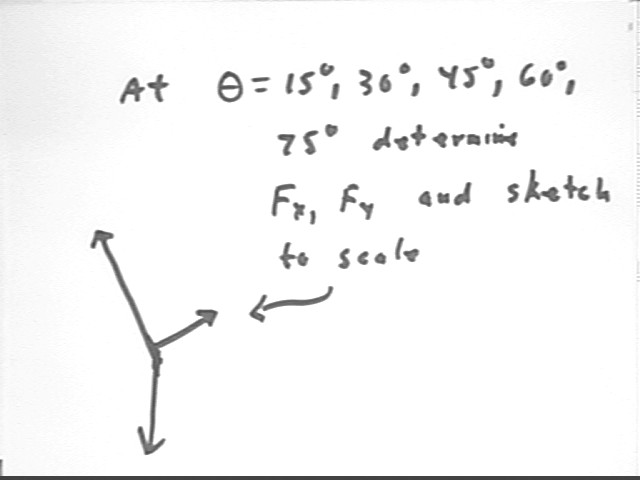 At θ = 15°, 30°, 45°, 60°,
75° determine
Fx, Fy and sketch
to scale